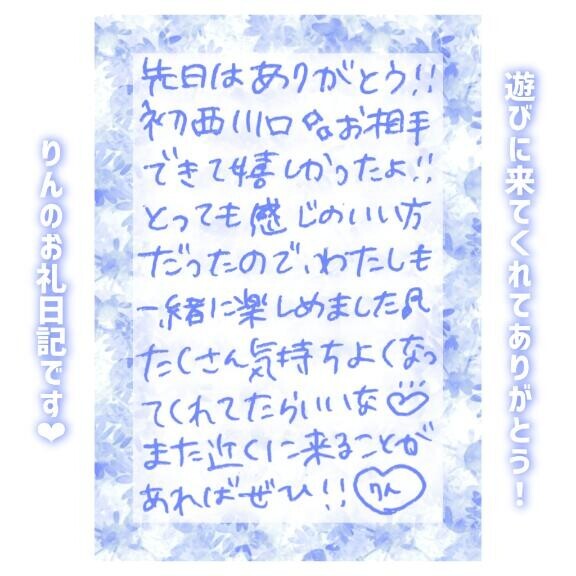 遊びに来てくれてありがとう！
先日はありがとう!!
初西川口 お相手
できて嬉しかったよ!!
とっても感じのいい方
だったので、わたしも
一緒に楽しめました♫
たくさん気持ちよくなっ
てくれてたらいいな♡
また近くに来ることが
あればぜひ!!
りん
りんのお礼日記です❤